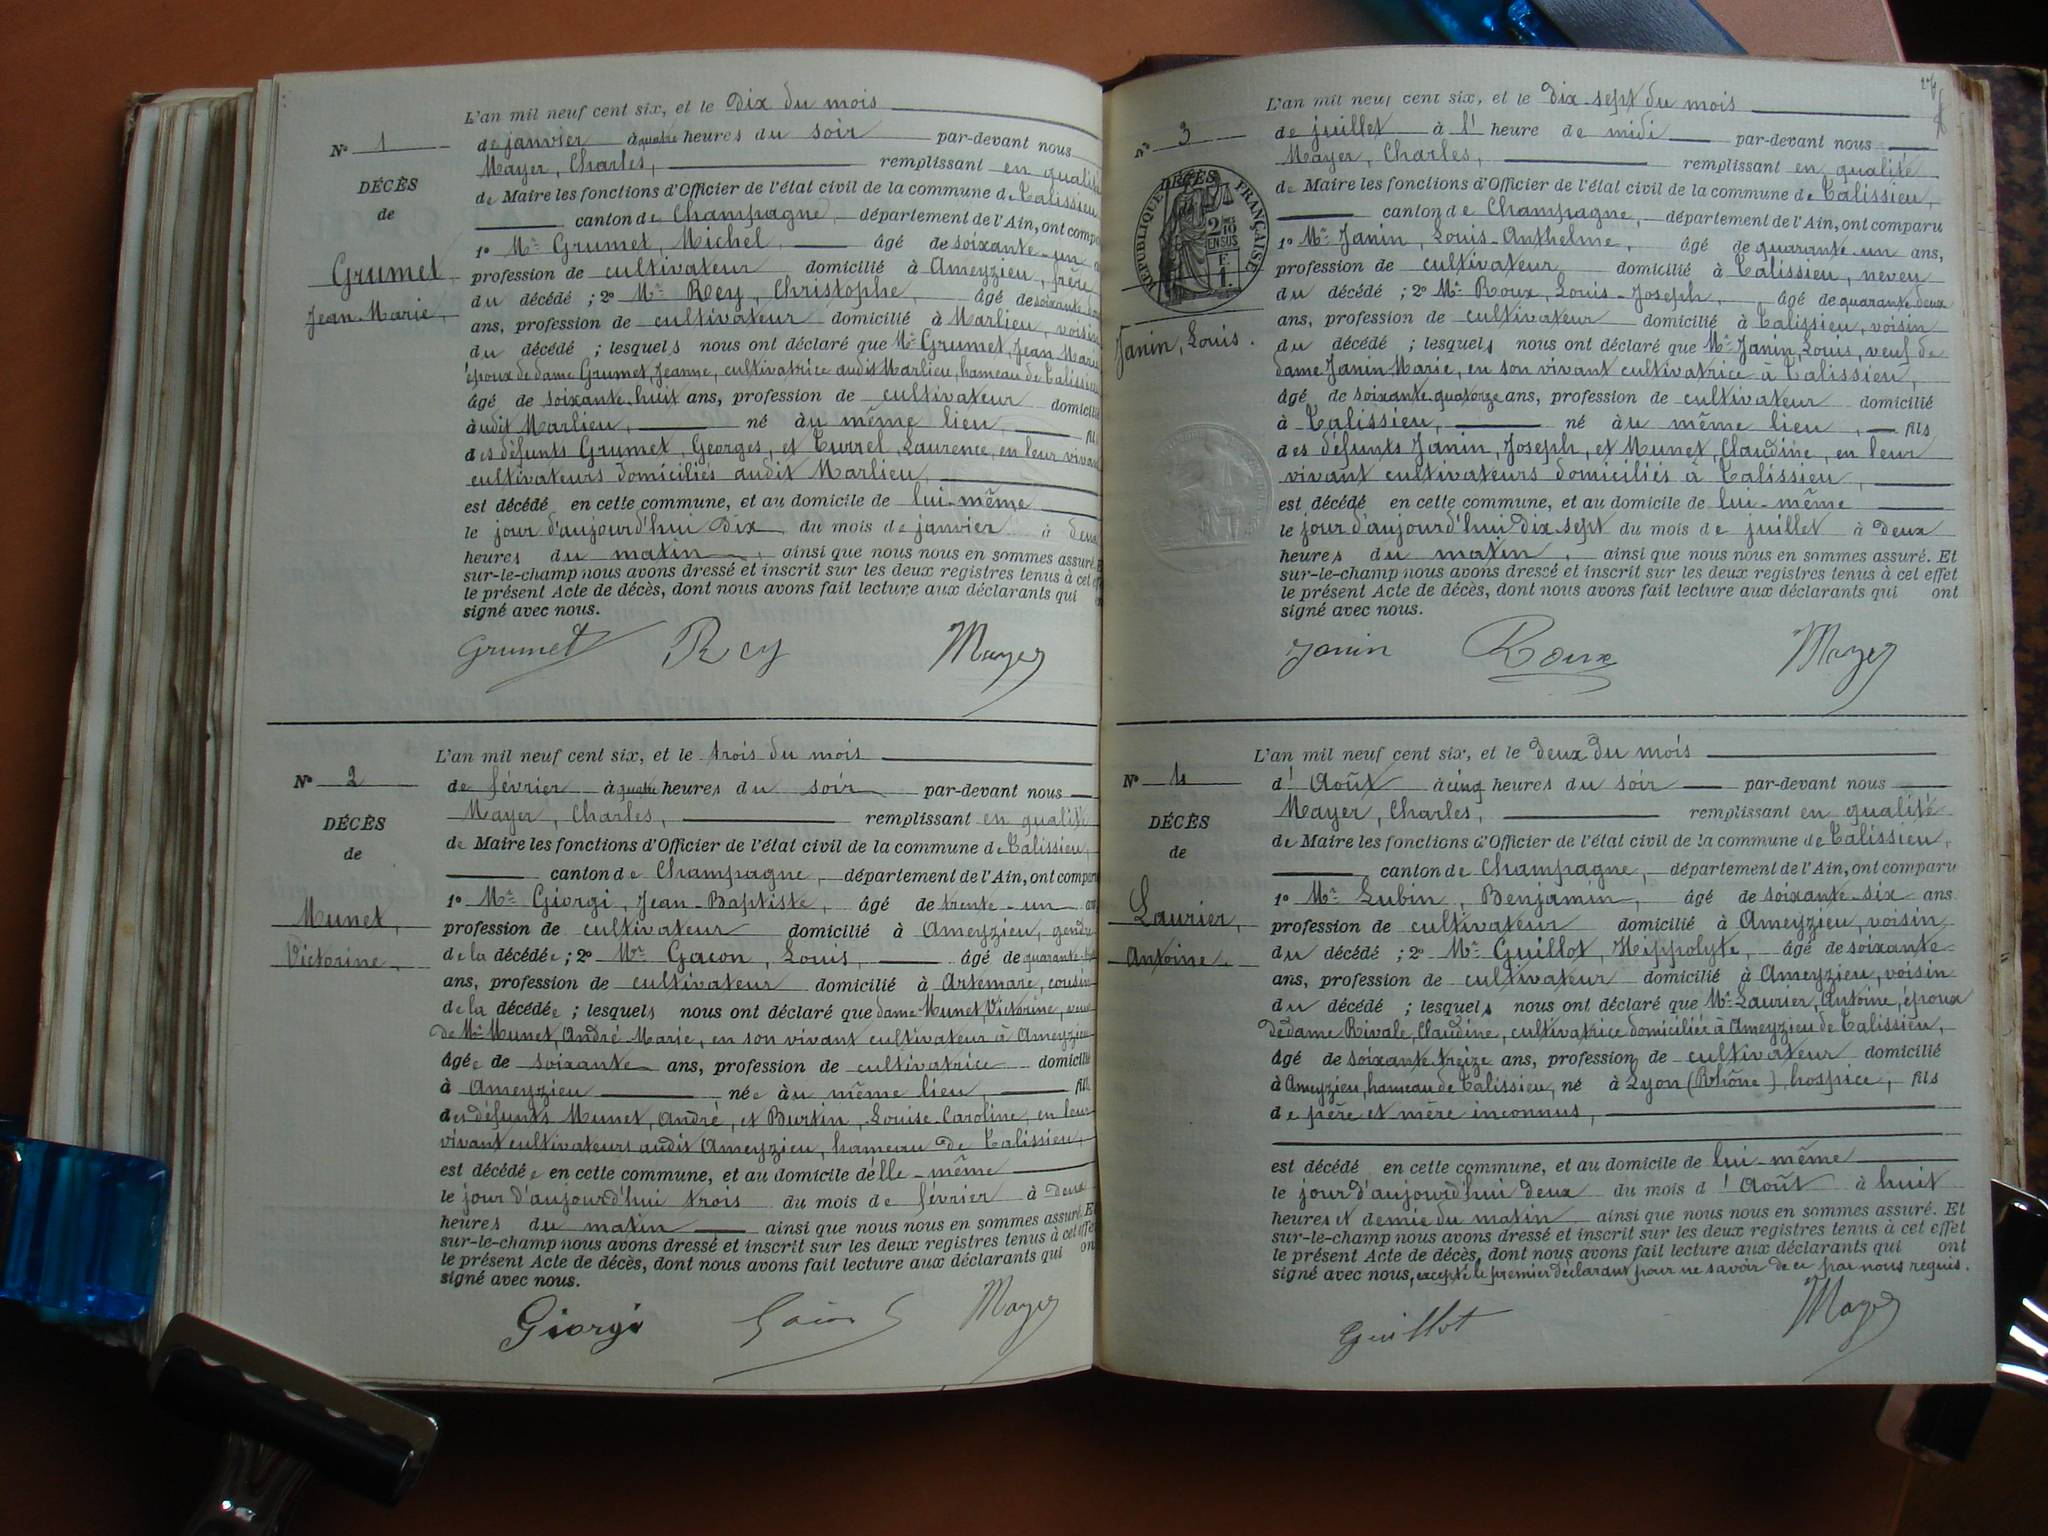 L'an mil neuf cent six, et le Dix du mois
Nº 1
de janvier à quatre heures du soir par-devant nous
Mayer, Charles, remplissant en qualité
DÉCÈS
de Maire les fonctions d'Officier de l'état civil de la commune de Talissieu,
de
canton de Champagne, département de l'Ain, ont comparu
1º Mr Grumet, Michel, âgé de soixante-un
Grumet
profession de cultivateur domicilié à Ameyzieu, frère
Jean-Marie,
du décédé ; 2º Mr Rey, Christophe, âgé de soixante
ans, profession de cultivateur domicilié à Marlieu, voisin
du décédé ; lesquels nous ont déclaré que Mr Grumet, Jean Marie
époux de dame Grumet, Jeanne, cultivatrice audit Marlieu, hameau de Talissieu
âgé de soixante-huit ans, profession de cultivateur domicilié
audit Marlieu, né au même lieu, fils
des défunts Grumet, Georges, et Turrel, Laurence, en leur vivant
cultivateurs domiciliés audit Marlieu,
est décédé en cette commune, et au domicile de lui-même
le jour d'aujourd'hui Dix du mois de janvier à deux
heures du matin, ainsi que nous nous en sommes assuré. Et
sur-le-champ nous avons dressé et inscrit sur les deux registres tenus à cet effet
le présent Acte de décès, dont nous avons fait lecture aux déclarants qui ont
signé avec nous.
Grumet Rey Mayer
L'an mil neuf cent six, et le trois du mois
Nº 2
de février à quatre heures du soir par-devant nous
Mayer, Charles, remplissant en qualité
DÉCÈS
de Maire les fonctions d'Officier de l'état civil de la commune de Talissieu,
de
canton de Champagne, département de l'Ain, ont comparu
1º Mr Giorgi, Jean-Baptiste, âgé de trente-un ans
Munet,
profession de cultivateur domicilié à Ameyzieu, gendre
Victorine,
de la décédée ; 2º Mr Gacon, Louis, âgé de quarante
ans, profession de cultivateur domicilié à Artemare, cousin
de la décédée ; lesquels nous ont déclaré que dame Munet, Victorine, veuve
de Mr Munet, André-Marie, en son vivant cultivateur à Ameyzieu
âgée de soixante ans, profession de cultivatrice domicilié
à Ameyzieu née au même lieu, fille
des défunts Munet, André, et Burtin, Louise-Caroline, en leur
vivant cultivateurs audit Ameyzieu, hameau de Talissieu,
est décédée en cette commune, et au domicile d'elle-même
le jour d'aujourd'hui trois du mois de février à deux
heures du matin ainsi que nous nous en sommes assuré. Et
sur-le-champ nous avons dressé et inscrit sur les deux registres tenus à cet effet
le présent Acte de décès, dont nous avons fait lecture aux déclarants qui ont
signé avec nous.
Giorgi Mayer
L'an mil neuf cent six, et le Dix-sept du mois
Nº 3
de juillet à l' heure de midi par-devant nous
Mayer, Charles, remplissant en qualité
DÉCÈS
RÉPUBLIQUE FRANÇAISE
2/10 EN SUS
F.
1.
de Maire les fonctions d'Officier de l'état civil de la commune de Talissieu,
canton de Champagne, département de l'Ain, ont comparu
1º Mr Janin, Louis-Anthelme, âgé de quarante-un ans,
profession de cultivateur domicilié à Talissieu, neveu
du décédé ; 2º Mr Roux, Louis-Joseph, âgé de quarante-deux
ans, profession de cultivateur domicilié à Talissieu, voisin
Janin, Louis.
du décédé ; lesquels nous ont déclaré que Mr Janin, Louis, veuf de
dame Janin Marie, en son vivant cultivatrice à Talissieu,
âgé de soixante-quatorze ans, profession de cultivateur domicilié
à Talissieu, né au même lieu, fils
des défunts Janin, Joseph, et Munet, Claudine, en leur
vivant cultivateurs domiciliés à Talissieu,
est décédé en cette commune, et au domicile de lui-même
le jour d'aujourd'hui Dix-sept du mois de juillet à deux
heures du matin, ainsi que nous nous en sommes assuré. Et
sur-le-champ nous avons dressé et inscrit sur les deux registres tenus à cet effet
le présent Acte de décès, dont nous avons fait lecture aux déclarants qui ont
signé avec nous.
Janin Roux Mayer
L'an mil neuf cent six, et le Deux du mois
Nº 4
d'Août à cinq heures du soir par-devant nous
Mayer, Charles, remplissant en qualité
DÉCÈS
de Maire les fonctions d'Officier de l'état civil de la commune de Talissieu,
de
canton de Champagne, département de l'Ain, ont comparu
1º Mr Lubin, Benjamin, âgé de soixante-six ans
Laurier,
profession de cultivateur domicilié à Ameyzieu, voisin
Antoine.
du décédé ; 2º Mr Guillot, Hippolyte, âgé de soixante
ans, profession de cultivateur domicilié à Ameyzieu, voisin
du décédé ; lesquels nous ont déclaré que Mr Laurier, Antoine, époux
de dame Rivale, Claudine, cultivatrice domiciliée à Ameyzieu de Talissieu,
âgé de soixante-treize ans, profession de cultivateur domicilié
à Ameyzieu, hameau de Talissieu, né à Lyon (Rhône), hospice, fils
de père et mère inconnus,
est décédé en cette commune, et au domicile de lui-même
le jour d'aujourd'hui deux du mois d'Août à huit
heures et demie du matin ainsi que nous nous en sommes assuré. Et
sur-le-champ nous avons dressé et inscrit sur les deux registres tenus à cet effet
le présent Acte de décès, dont nous avons fait lecture aux déclarants qui ont
signé avec nous, excepté le premier déclarant pour ne savoir de ce par nous requis.
Guillot Mayer